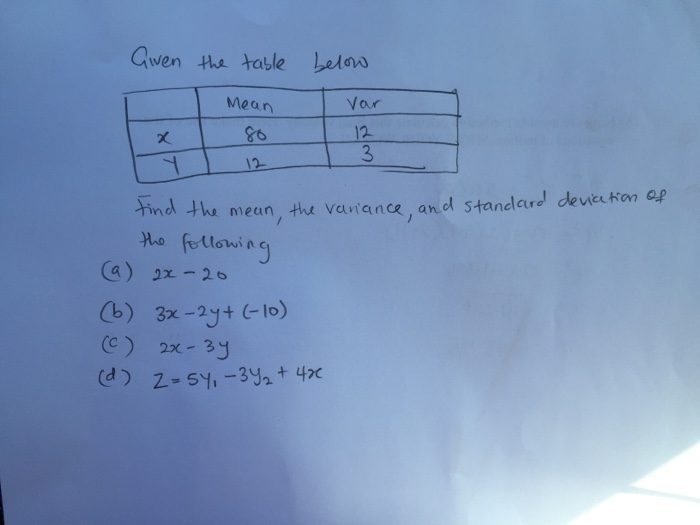 Given the table below
Mean Var
x 80 12
Y 12 3
Find the mean, the variance, and standard deviation of
the following
(a) 2x - 20
(b) 3x - 2y + (-10)
(c) 2x - 3y
(d) Z = 5Y₁ - 3Y₂ + 4x